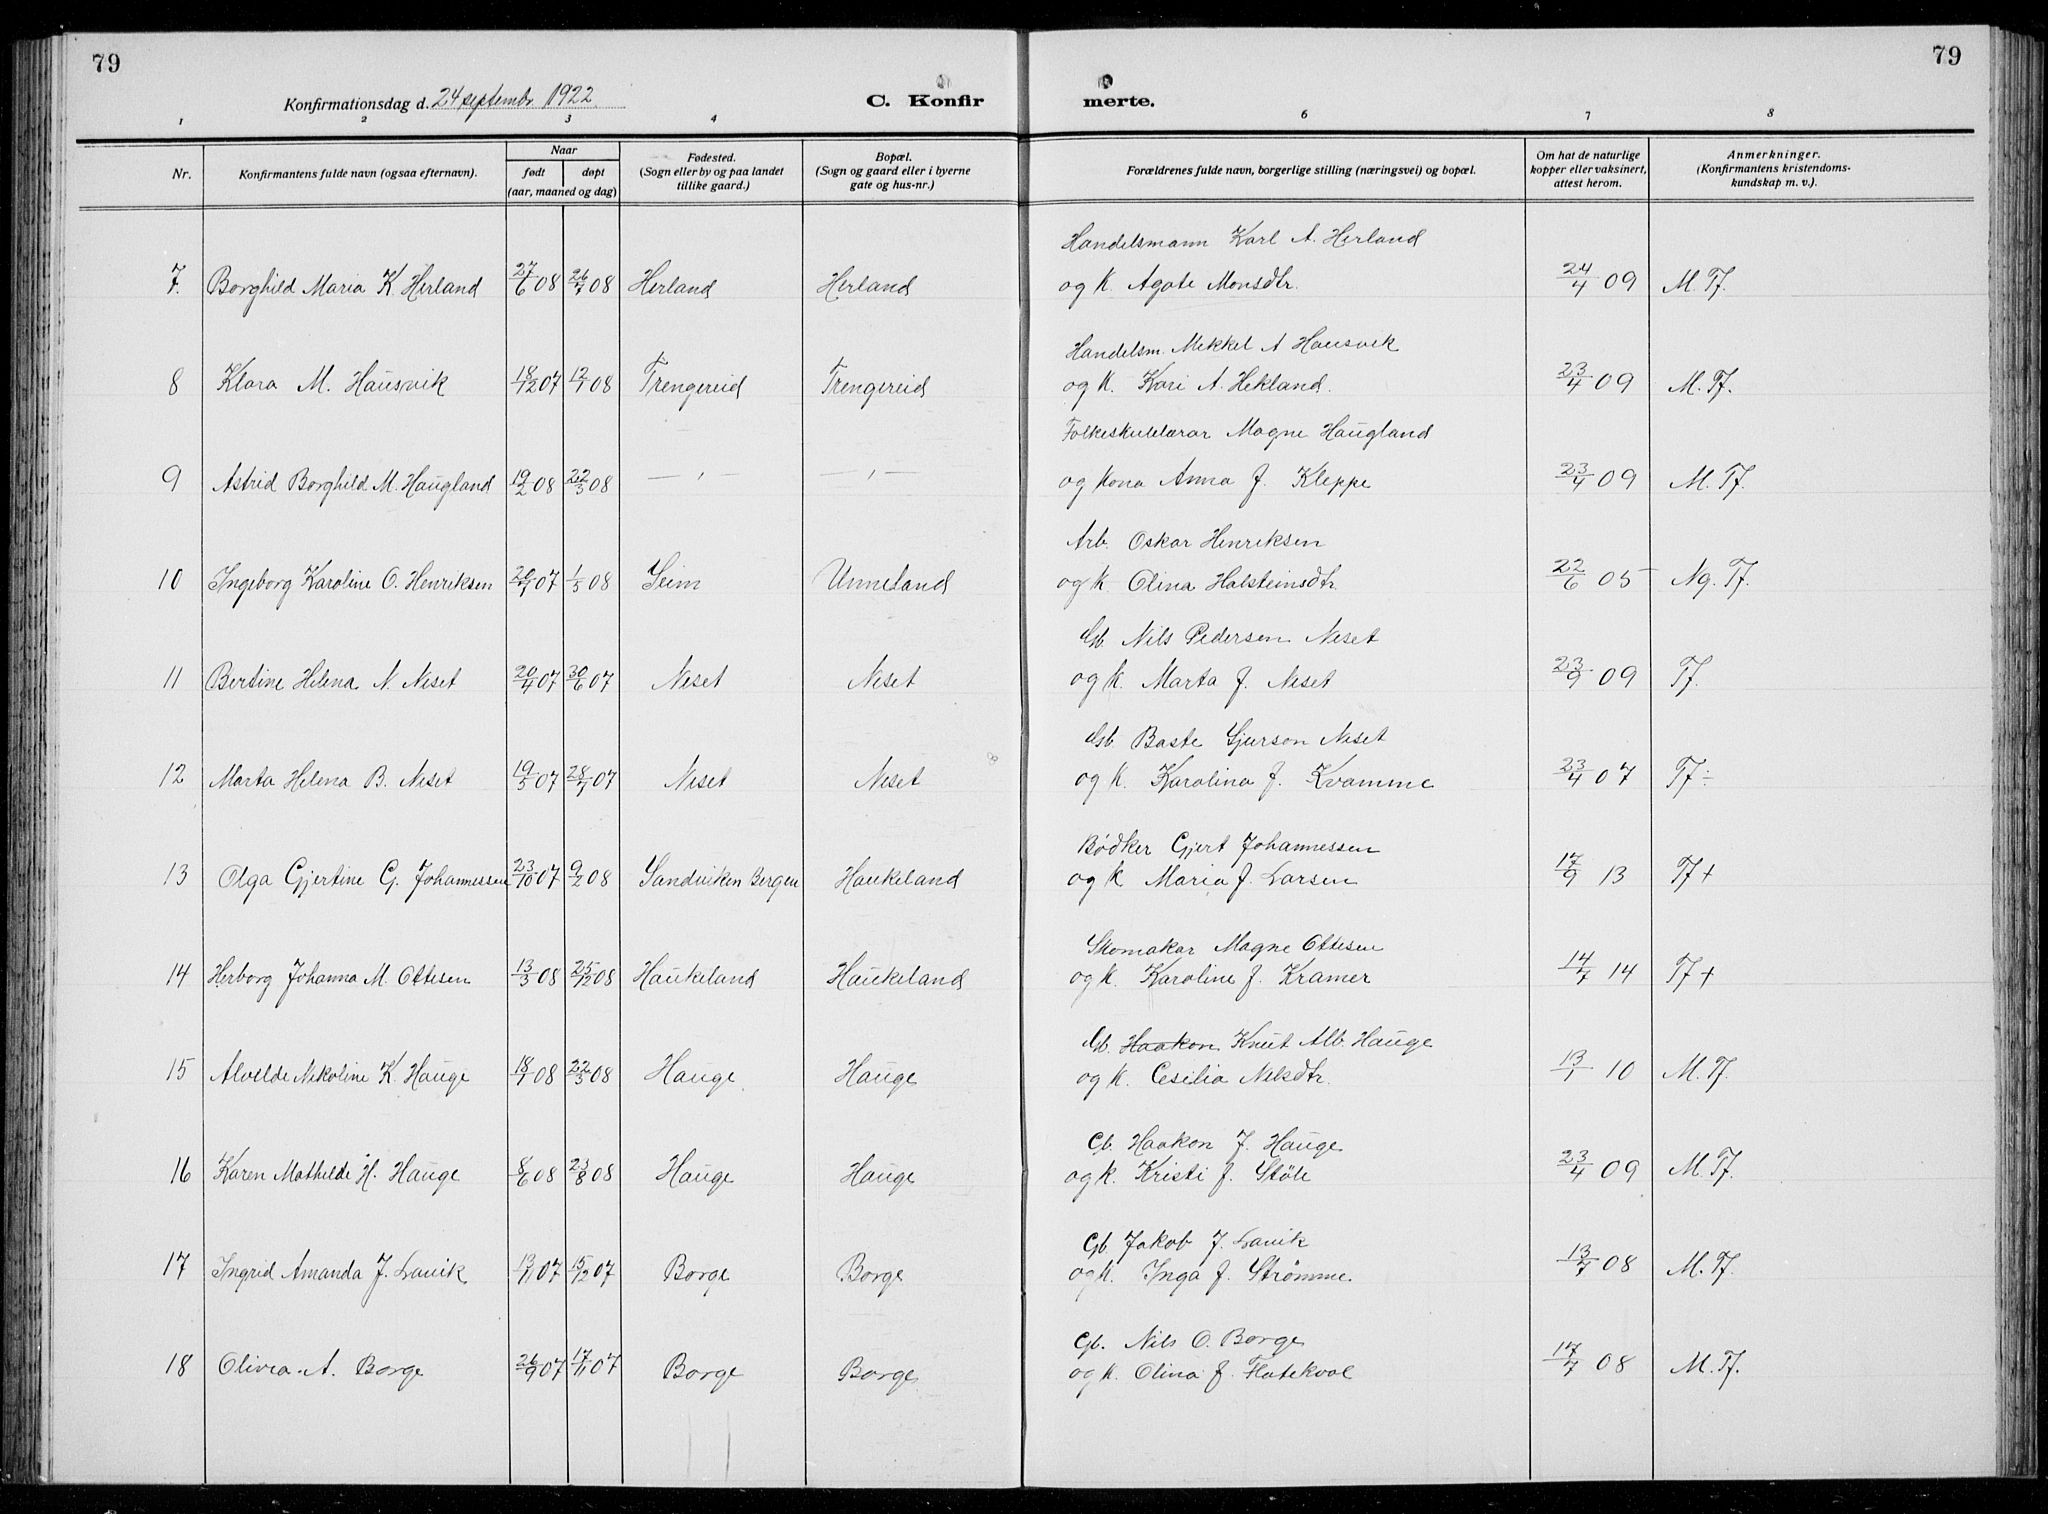 79
79
Konfirmationsdag d. 24 septembr 1922
C. Konfir
merte.
1 2 3 4 6 7 8
Nr.
Konfirmantens fulde navn (ogsaa efternavn).
Naar
født
døpt
(aar, maaned og dag)
Fødested.
(Sogn eller by og paa landet
tillike gaard.)
Bopæl.
(Sogn og gaard eller i byerne
gate og hus-nr.)
Forældrenes fulde navn, borgerlige stilling (næringsvei) og bopæl.
Om hat de naturlige
kopper eller vaksinert,
attest herom.
Anmerkninger.
(Konfirmantens kristendoms-
kundskap m. v.).
Handelsmann Karl A. Herland
7. Borghild Maria K. Herland 27/6 08 26/7 08 Herland Herland og k. Agate Monsdtr. 24/4 09 M. Tf.
Handelsm. Mikkel A Hausvik
8 Klara M. Hausvik 18/12 07 12/1 08 Trengereid Trengereid og k. Kari A. Hekland. 23/4 09 M. Tf.
Folkeskulelærar Magne Haugland
9 Astrid Borghild M. Haugland 19/2 08 22/3 08 — , — — , — og kona Anna J. Kleppe 23/4 09 M. Tf.
Arb. Oskar Henriksen
10 Ingeborg Karoline O. Henriksen 07 1/3 08 Seim Unneland og k. Olina Halsteinsdtr. 22/6 05 Ng. Tf.
Gb. Nils Pedersen Neset
11 Bertine Helena N. Neset 20/4 07 30/6 07 Neset Neset og k. Marta J. Neset 23/9 09 Tf.
Gb. Baste Gjerson Neset
12 Marta Helena B. Neset 19/5 07 28/7 07 Neset Neset og k. Karolina J. Kvamme 23/4 07 Tf ÷
Bødker Gjert Johannessen
13 Olga Gjertine G. Johannessen 23/10 07 9/2 08 Sandviken Bergen Haukeland og k Maria J. Larsen 17/9 13 Tf +
Skomakar Magne Ottesen
14 Herborg Johanna M. Ottesen 13/3 08 25/12 08 Haukeland Haukeland og k. Karoline J. Kramer 14/7 14 Tf +
Gb. Haakon Knut Alb. Hauge
15 Alvilde Nikoline K. Hauge 18/1 08 22/3 08 Hauge Hauge og k. Cesilia Nilsdtr. 13/1 10 M. Tf.
Gb. Haakon J. Hauge
16 Karen Mathilde H. Hauge 8/6 08 23/8 08 Hauge Hauge og k. Kristi J. Støle 23/4 09 M. Tf.
Gb. Jakob J. Lavik
17 Ingrid Amanda J. Lavik 13/11 07 15/12 07 Borge Borge og k. Inga J. Strømme. 13/7 08 M. Tf.
Gb. Nils O. Borge
18 Olivia A. Borge 26/9 07 17/11 07 Borge Borge og k. Olina J. Flatekval 17/7 08 M. Tf.